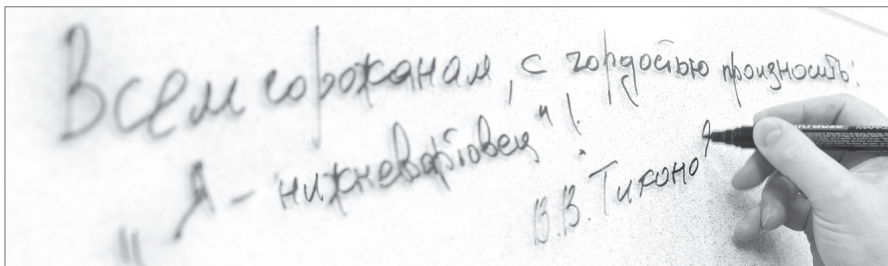 Всем горожанам, с гордостью произносить:
„Я – нижневартовец"!
В.В. Тихоно